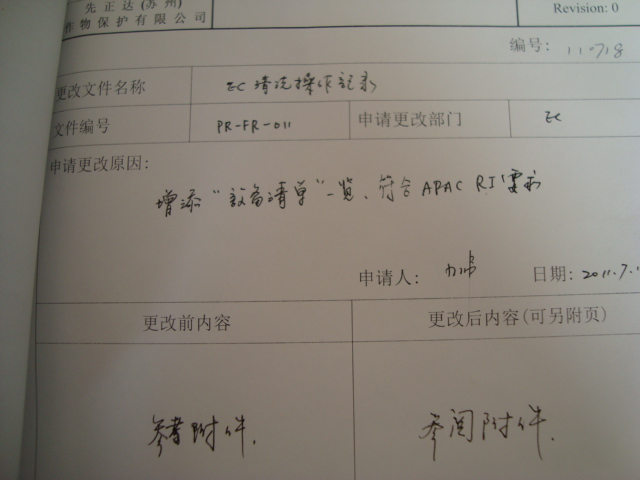 先正达(苏州)
作物保护有限公司
Revision: 0
编号: 110718
更改文件名称 EC 清洗操作记录
文件编号 PR-FR-011 申请更改部门 EC
申请更改原因:
增添“设备清单”一览、符合 APAC RI 要求
申请人: 日期: 2011.7.1
更改前内容 更改后内容(可另附页)
参考附件. 参阅附件.